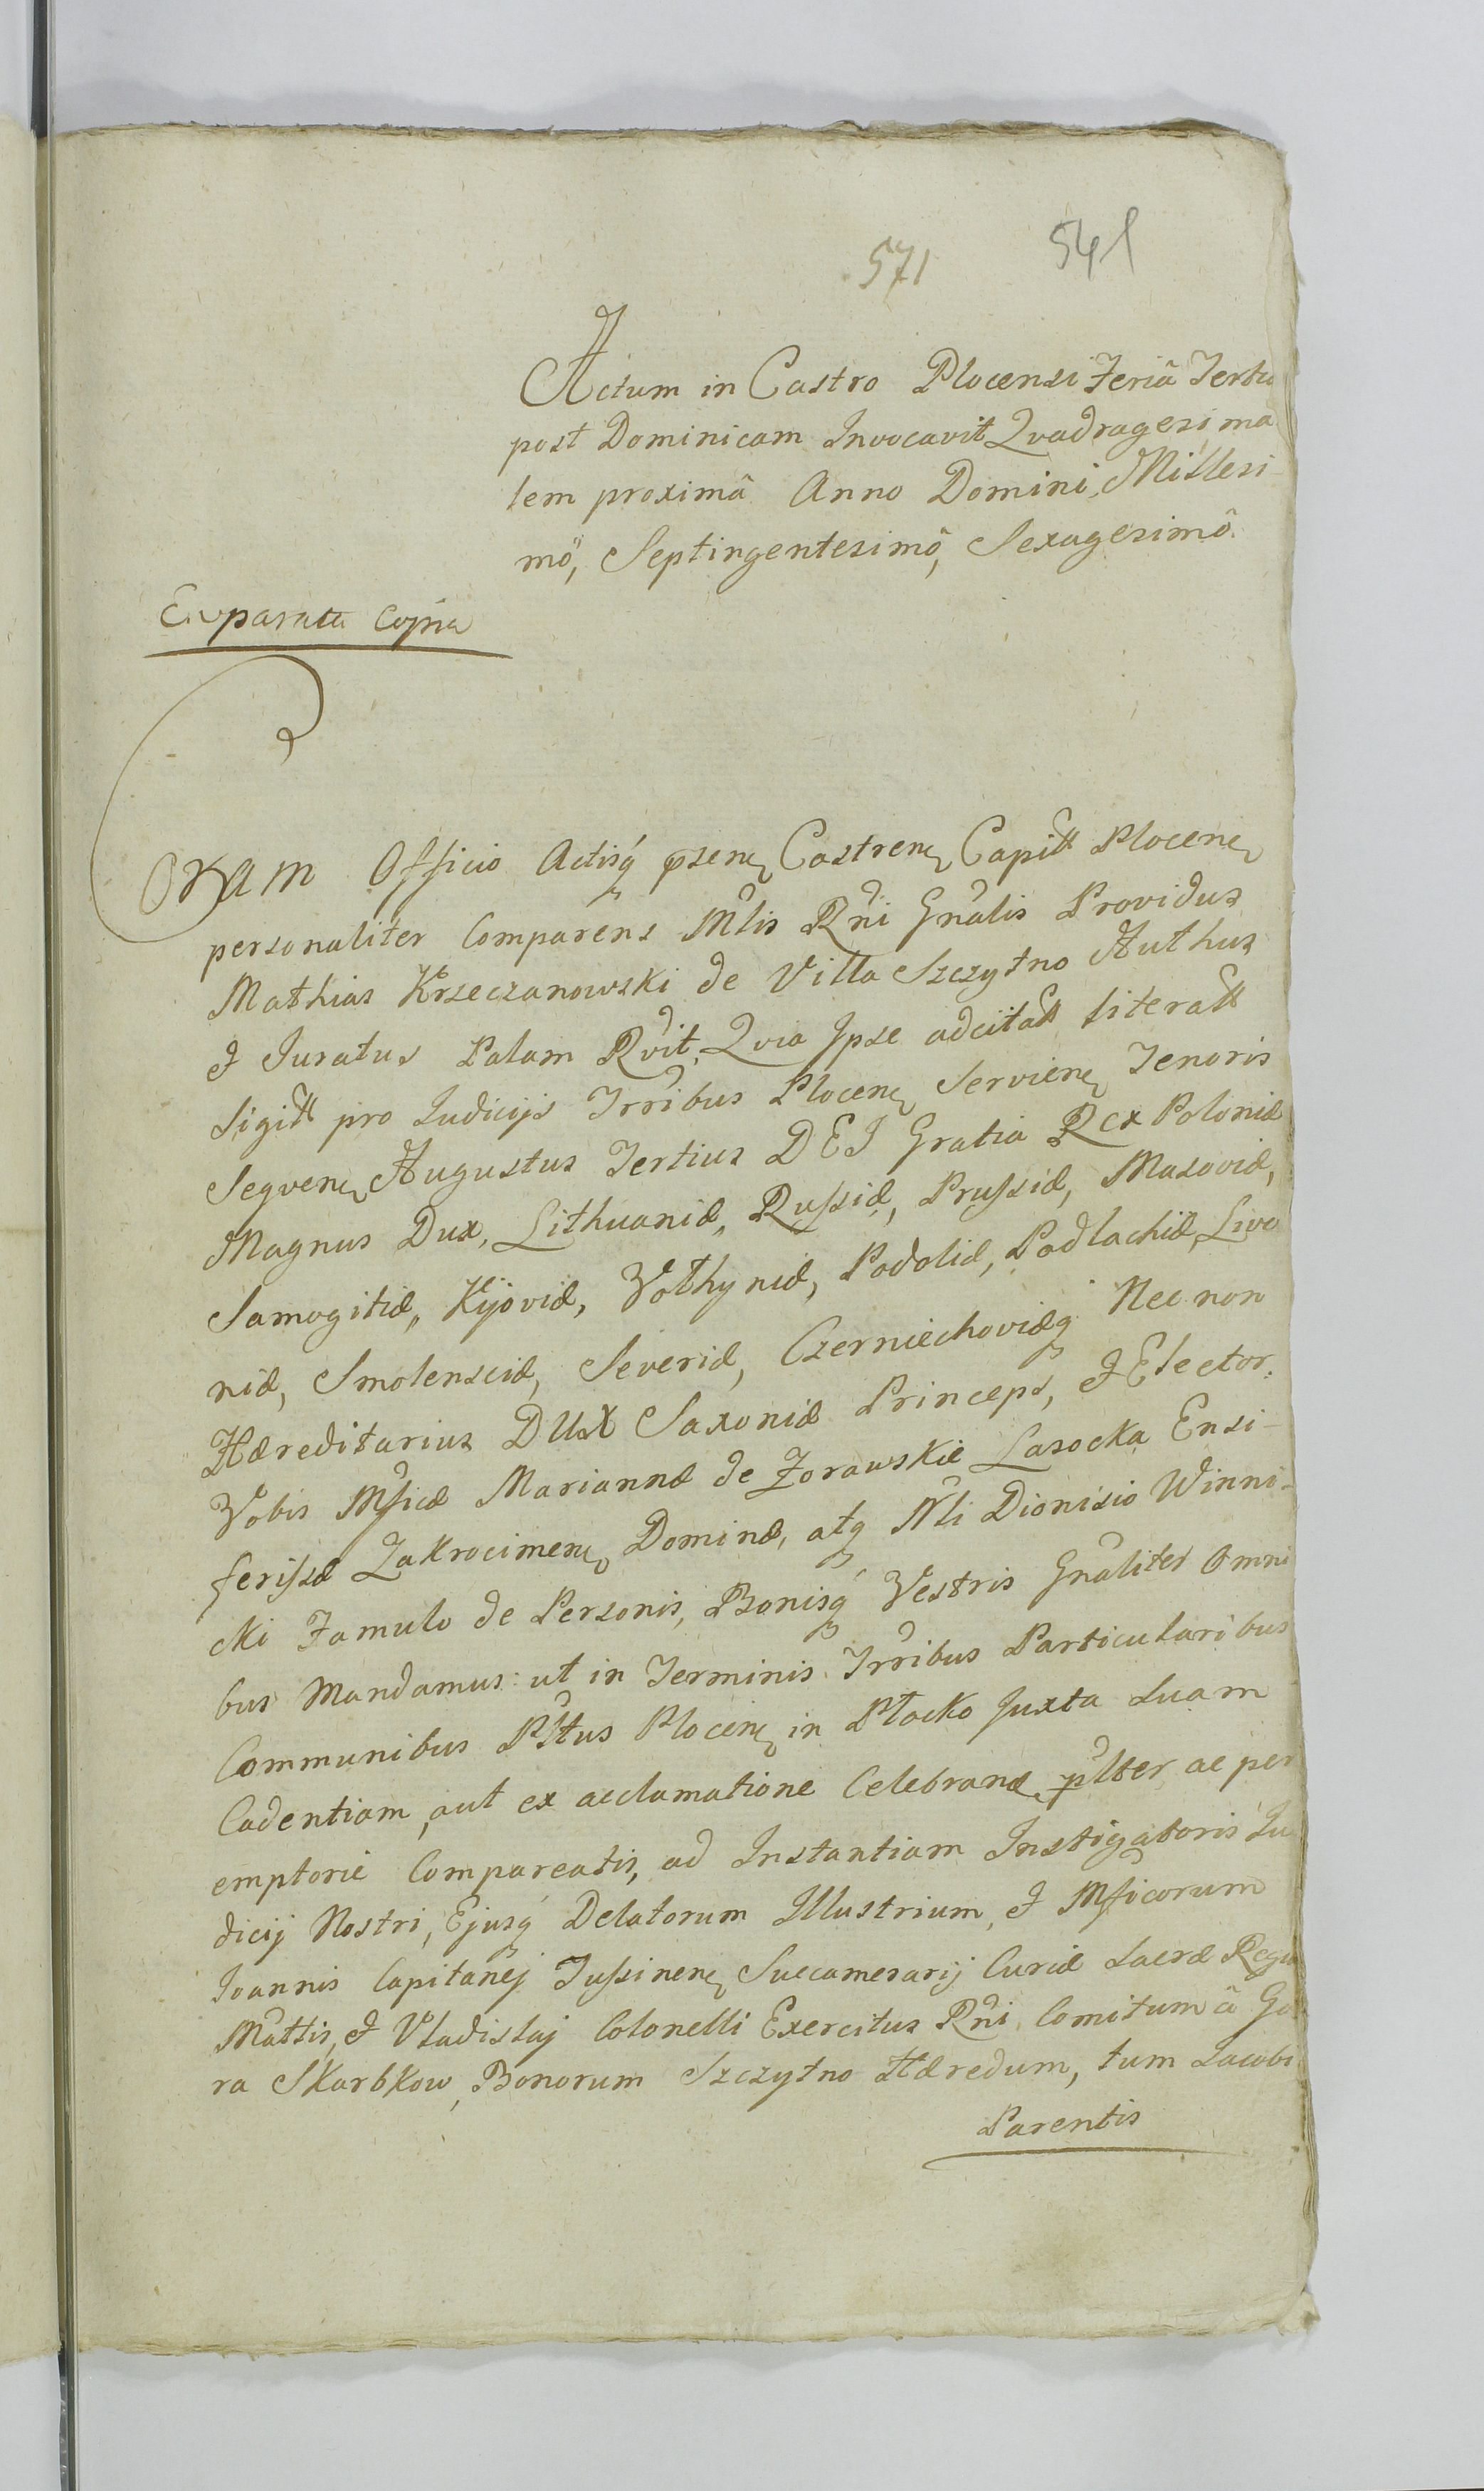 571 541
Actum in Castro Plocensi Feriâ Tertia
post Dominicam Invocavit Qvadragesima
lem proximâ Anno Domini Millesi-
mô, Septingentesimô, Sexagesimô.
Copia
Coram Officio Actisq́ps̃enę Castrenę Capitt Plocenę
personaliter Comparens Mlis Rñi Gnãlis Providus
Mathias Krzeczanowski de Villa Szczytno Authus
et Juratus Palam Rvit, Qvia Ipse adcitatt literatt
Sigitt pro Judicijs Trribus Plocenę Servienę Tenoris
Seqvenę Augustus Tertius DEI Gratia Rex Poloniæ
Magnus Dux, Lithuaniæ, Russiæ, Prussiæ, Masoviæ,
Samogitiæ, Kijoviæ, Vołhyniæ, Podoliæ, Podlachiæ, Livo
niæ, Smolensciæ, Severiæ, Czerniechoviæq́ Nec non
Hæreditarius DUX Saxoniæ Princeps, et Elector.
Vobis Mficæ Mariannæ de Zorawskie Lasocka Ensi-
ferissæ Zakrocimenę Dominæ, atq Nli Dionisio Winni-
cki Famulo de Personis, Bonisq́ Vestris Gnãliter Omni
bus Mandamus: ut in Terminis Trribus Particularibus
Communibus Pltus Plocenę in Płocko Juxta Suam
Cadentiam, aut ex acclamatione Celebranę, plter ac per
emptorie Compareatis, ad Instantiam Instigatoris Ju
dicij Nostri, Ejusq́ Delatorum Illustrium, et Mficorum
Joannis Capitanej Tussinenę Succamerarij Curiæ Sacræ Regiæ
Mattis, et Vladislaj Colonelli Exercitus Rñi Comitum â Go
ra Skarbkow, Bonorum Szczytno Hæredum, tum Jacobi
Parentis